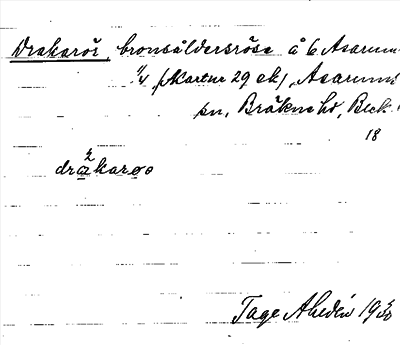 Drakarör, bronsåldersröse å 6 Asarum
1/4 (Kartnr 29 ek), Asarums
sn, Bräkne hd, Blek.
18
drakarøs
Tage Ahldén 1930